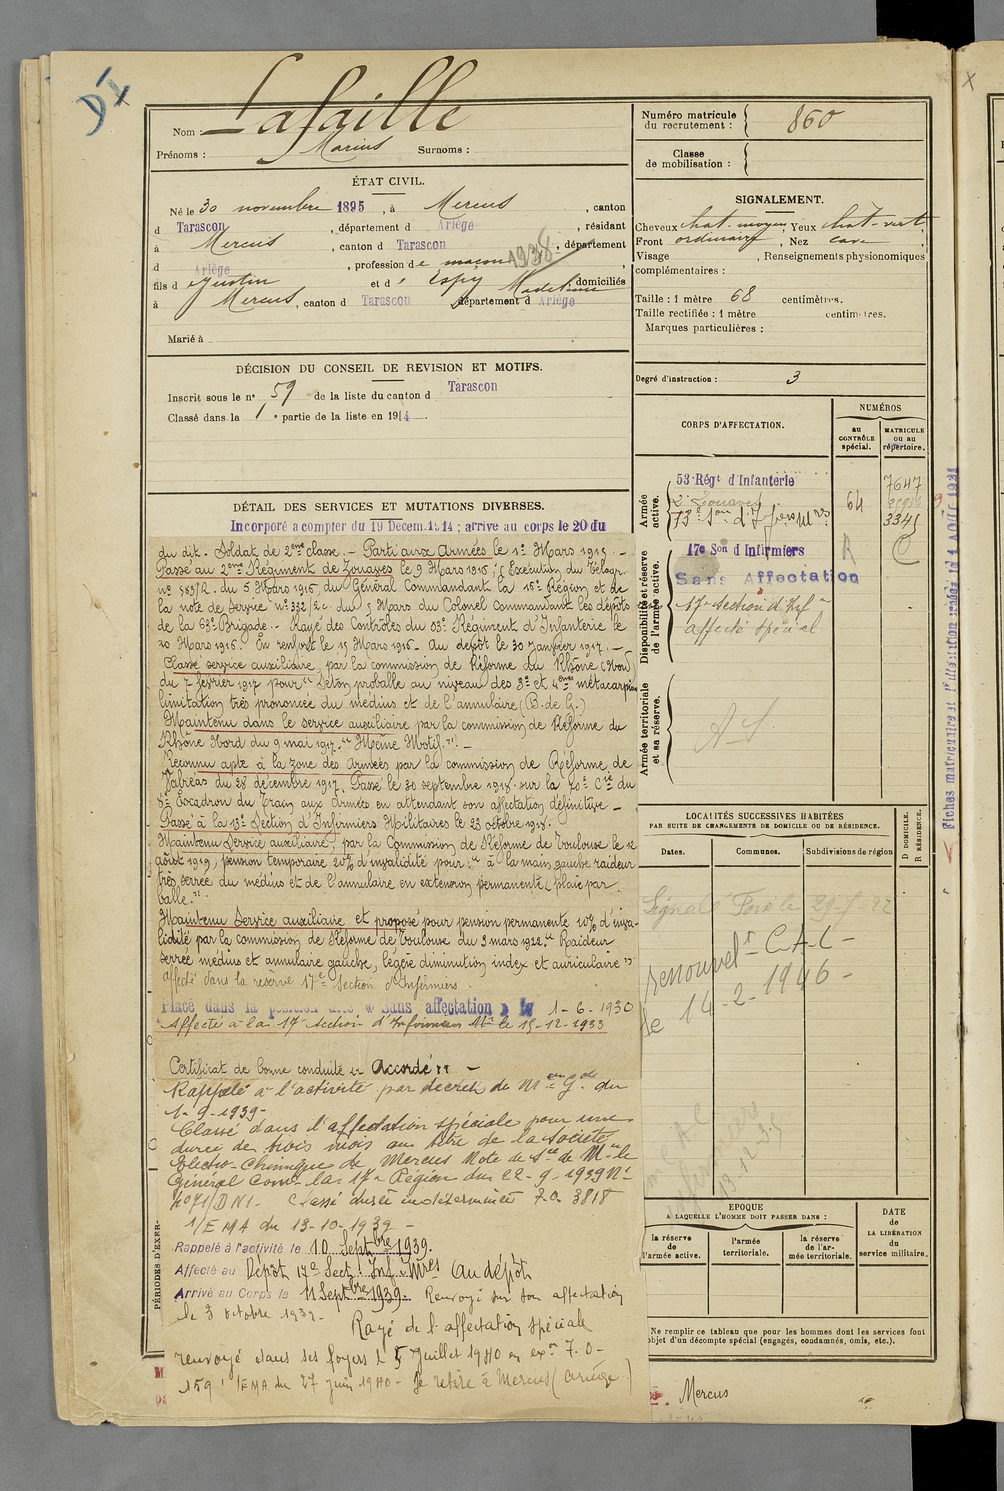 DI
Nom : Lafaille
Prénoms : Marius Surnoms :
ÉTAT CIVIL.
Né le 30 novembre 1895, à Mercus, canton
d Tarascon, département d Ariège, résidant
à Mercus, canton d Tarascon, département
d Ariège, profession de maçon 1938,
fils d Justin et d' Espy Madeleine domiciliés
à Mercus, canton d Tarascon département d Ariège
Marié à
DÉCISION DU CONSEIL DE REVISION ET MOTIFS.
Inscrit sous le nº 59 de la liste du canton d Tarascon
Classé dans la 1e partie de la liste en 1914.
DÉTAIL DES SERVICES ET MUTATIONS DIVERSES.
Incorporé a compter du 19 Décem. 1914 ; arrive au corps le 20 du
du dit. Soldat de 2ème classe. - Parti aux Armées le 1er Mars 1915. -
Passé au 2ème Régiment de Zouaves le 9 Mars 1916 ; (Exécution du Télégr.
nº 583/R. du 5 Mars 1916, du Général Commandant la 16e Région et de
la note de Service nº 332/2c. du 5 Mars du Colonel Commandant les dépôts
de la 63e Brigade. - Rayé des Contrôles du 53e Régiment d'Infanterie le
10 Mars 1916. En renfort le 15 Mars 1916. Au dépôt le 30 janvier 1917. -
Classé service auxiliaire, par la commission de Réforme du Rhône (Nord)
du 7 février 1917 pour "Séton proballe au niveau des 3e et 4ème métacarpien
limitation très prononcée du médius et de l'annulaire (B. de G.)
Maintenu dans le service auxiliaire par la commission de Réforme du
Rhône Nord du 9 mai 1917. "Même Motif." -
Reconnu apte à la zone des Armées par la commission de Réforme de
Valréas du 28 décembre 1917. Passé le 30 septembre 1918 sur la 70e Cie du
8e Escadron du Train aux Armées en attendant son affectation définitive -
Passé à la 13e Section d'Infirmiers Militaires le 23 octobre 1918.
Maintenu Service auxiliaire, par la Commission de Réforme de Toulouse le 12
août 1919, pension temporaire 20% d'invalidité pour : "à la main gauche raideur
très serrée du médius et de l'annulaire en extension permanente, plaie par
balle."
Maintenu Service auxiliaire et proposé pour pension permanente 10% d'inva-
lidité par la commission de Réforme de Toulouse du 3 mars 1922 "Raideur
serrée médius et annulaire gauche, légère diminution index et auriculaire"
affecté dans la réserve 17e Section d'Infirmiers.
Placé dans la position dite « Sans affectation » 1-6-1930
Affecté à la 17e section d'Infirmiers Mres le 15-12-1933
Certificat de bonne conduite "Accordé" -
Rappelé à l'activité par décret de Mon Gale du
1-9-1939-
Classé dans l'affectation spéciale pour une
durée de trois mois au titre de la Société
Electro-Chimique de Mercus Note de Sce de Mr le
Général Comt la 17e Région du 22-9-1939 Nº
4071/DN1. Classé durée indéterminée F.O. 3818
1/EMA du 13-10-1939 -
Rappelé à l'activité le 10 Septbre 1939.
Affecté au Dépôt 17e Sect. Inf. Mres Au dépôt
Arrivé au Corps le 11 Septbre 1939. Renvoyé sur son affectation
le 3 octobre 1939-
Rayé de l'affectation spéciale
renvoyé dans ses foyers le 5 Juillet 1940 en exon F.O-
159 1/EMA du 27 juin 1940 - Se retire à Mercus (Ariège)
PÉRIODES D'EXER-
Numéro matricule du recrutement : 860
Classe de mobilisation :
SIGNALEMENT.
Cheveux chat. moyen, Yeux chat-vert
Front ordinaire, Nez cave,
Visage , Renseignements physionomiques
complémentaires :
Taille : 1 mètre 68 centimètres.
Taille rectifiée : 1 mètre centimètres.
Marques particulières :
Degré d'instruction : 3
CORPS D'AFFECTATION.
NUMÉROS
au CONTRÔLE spécial.
MATRICULE ou au répertoire.
Armée active.
53 Régt d'Infanterie 7647
2e Zouaves 64
13e Son d'Infirmiers Mres 3345
Disponibilité et réserve de l'armée active.
17e Son d'Infirmiers R
Sans Affectation
17e section d'Inf
affecté spécial
Armée territoriale et sa réserve.
AS
LOCALITÉS SUCCESSIVES HABITÉES
PAR SUITE DE CHANGEMENTS DE DOMICILE OU DE RÉSIDENCE.
Dates. Communes. Subdivisions de région
D DOMICILE.
R RÉSIDENCE.
renouvelt C.A.C -
le 14-2-1946 -
13-12-35
EPOQUE
A LAQUELLE L'HOMME DOIT PASSER DANS :
la réserve de l'armée active.
l'armée territoriale.
la réserve de l'armée territoriale.
DATE de LA LIBÉRATION du service militaire.
Ne remplir ce tableau que pour les hommes dont les services font
objet d'un décompte spécial (engagés, condamnés, omis, etc.).
Mercus